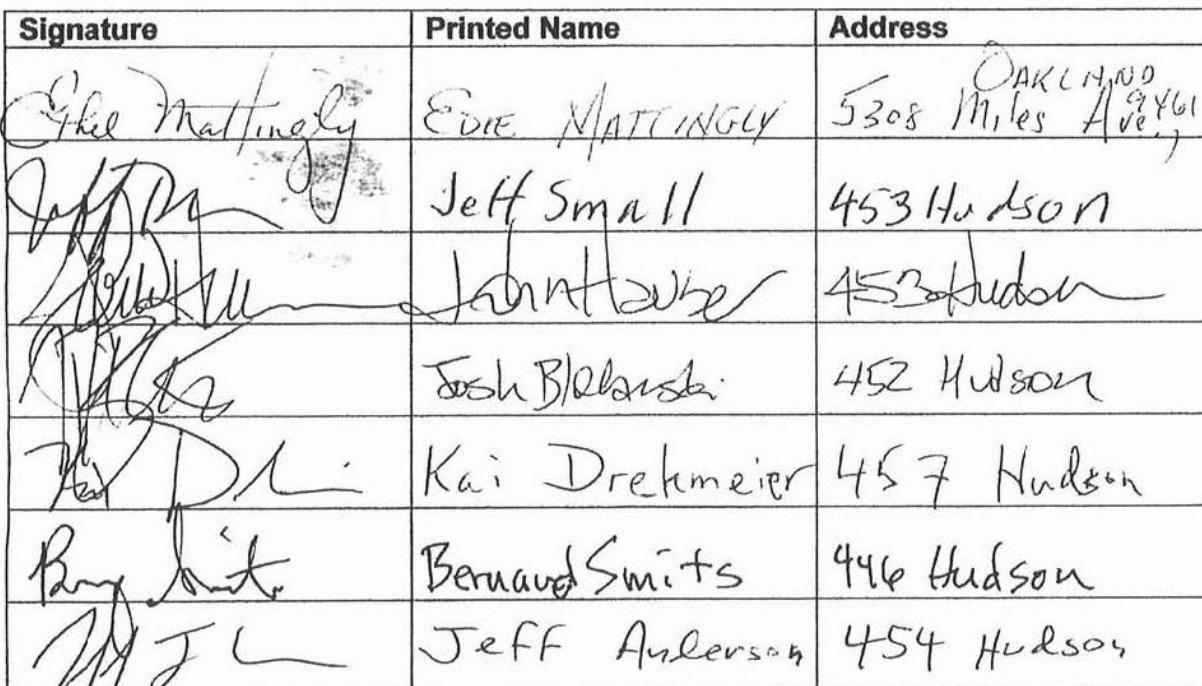 Signature Printed Name Address
Ethel Mattingly EDIE MATTINGLY 5308 Miles Ave., OAKLAND
Jeff Small 453 Hudson
John Hauser 453 Hudson
Josh 452 Hudson
Kai Drekmeier 457 Hudson
Bernard Smits 446 Hudson
Jeff Anderson 454 Hudson